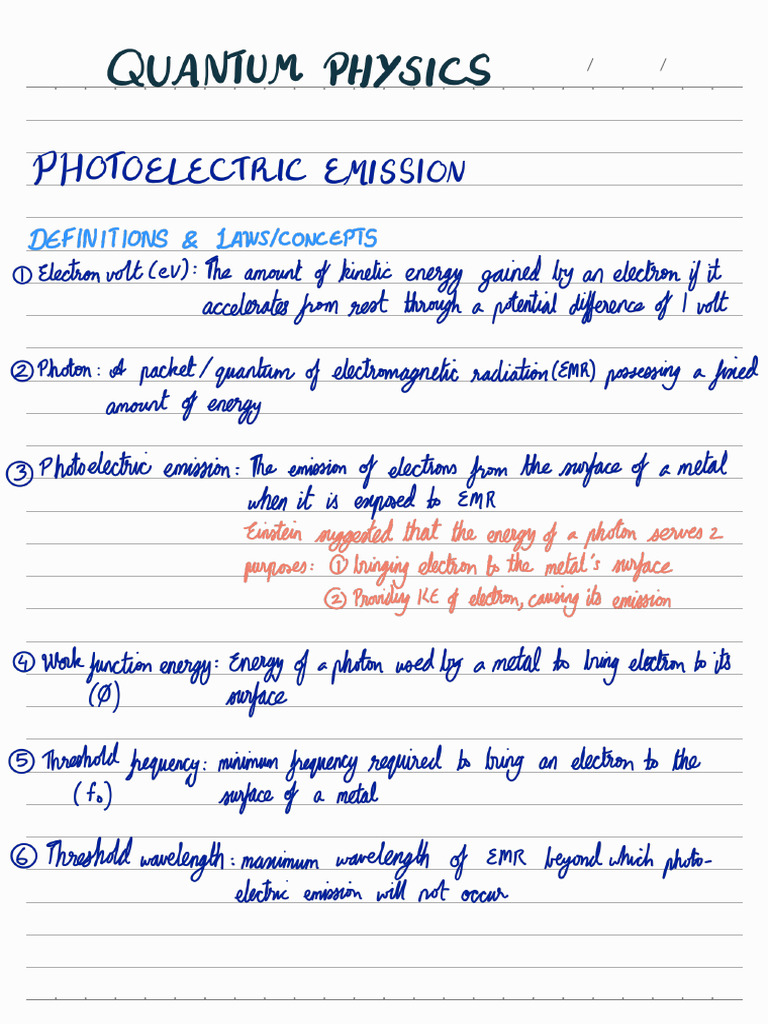 QUANTUM PHYSICS / /
PHOTOELECTRIC EMISSION
DEFINITIONS & LAWS/CONCEPTS
① Electron volt (eV): The amount of kinetic energy gained by an electron if it
accelerates from rest through a potential difference of 1 volt
② Photon: A packet/quantum of electromagnetic radiation (EMR) possessing a fixed
amount of energy
③ Photoelectric emission: The emission of electrons from the surface of a metal
when it is exposed to EMR
Einstein suggested that the energy of a photon serves 2
purposes: ① bringing electron to the metal's surface
② Providing KE of electron, causing its emission
④ Work function energy: Energy of a photon used by a metal to bring electron to its
(Ø) surface
⑤ Threshold frequency: minimum frequency required to bring an electron to the
(f₀) surface of a metal
⑥ Threshold wavelength: maximum wavelength of EMR beyond which photo-
electric emission will not occur